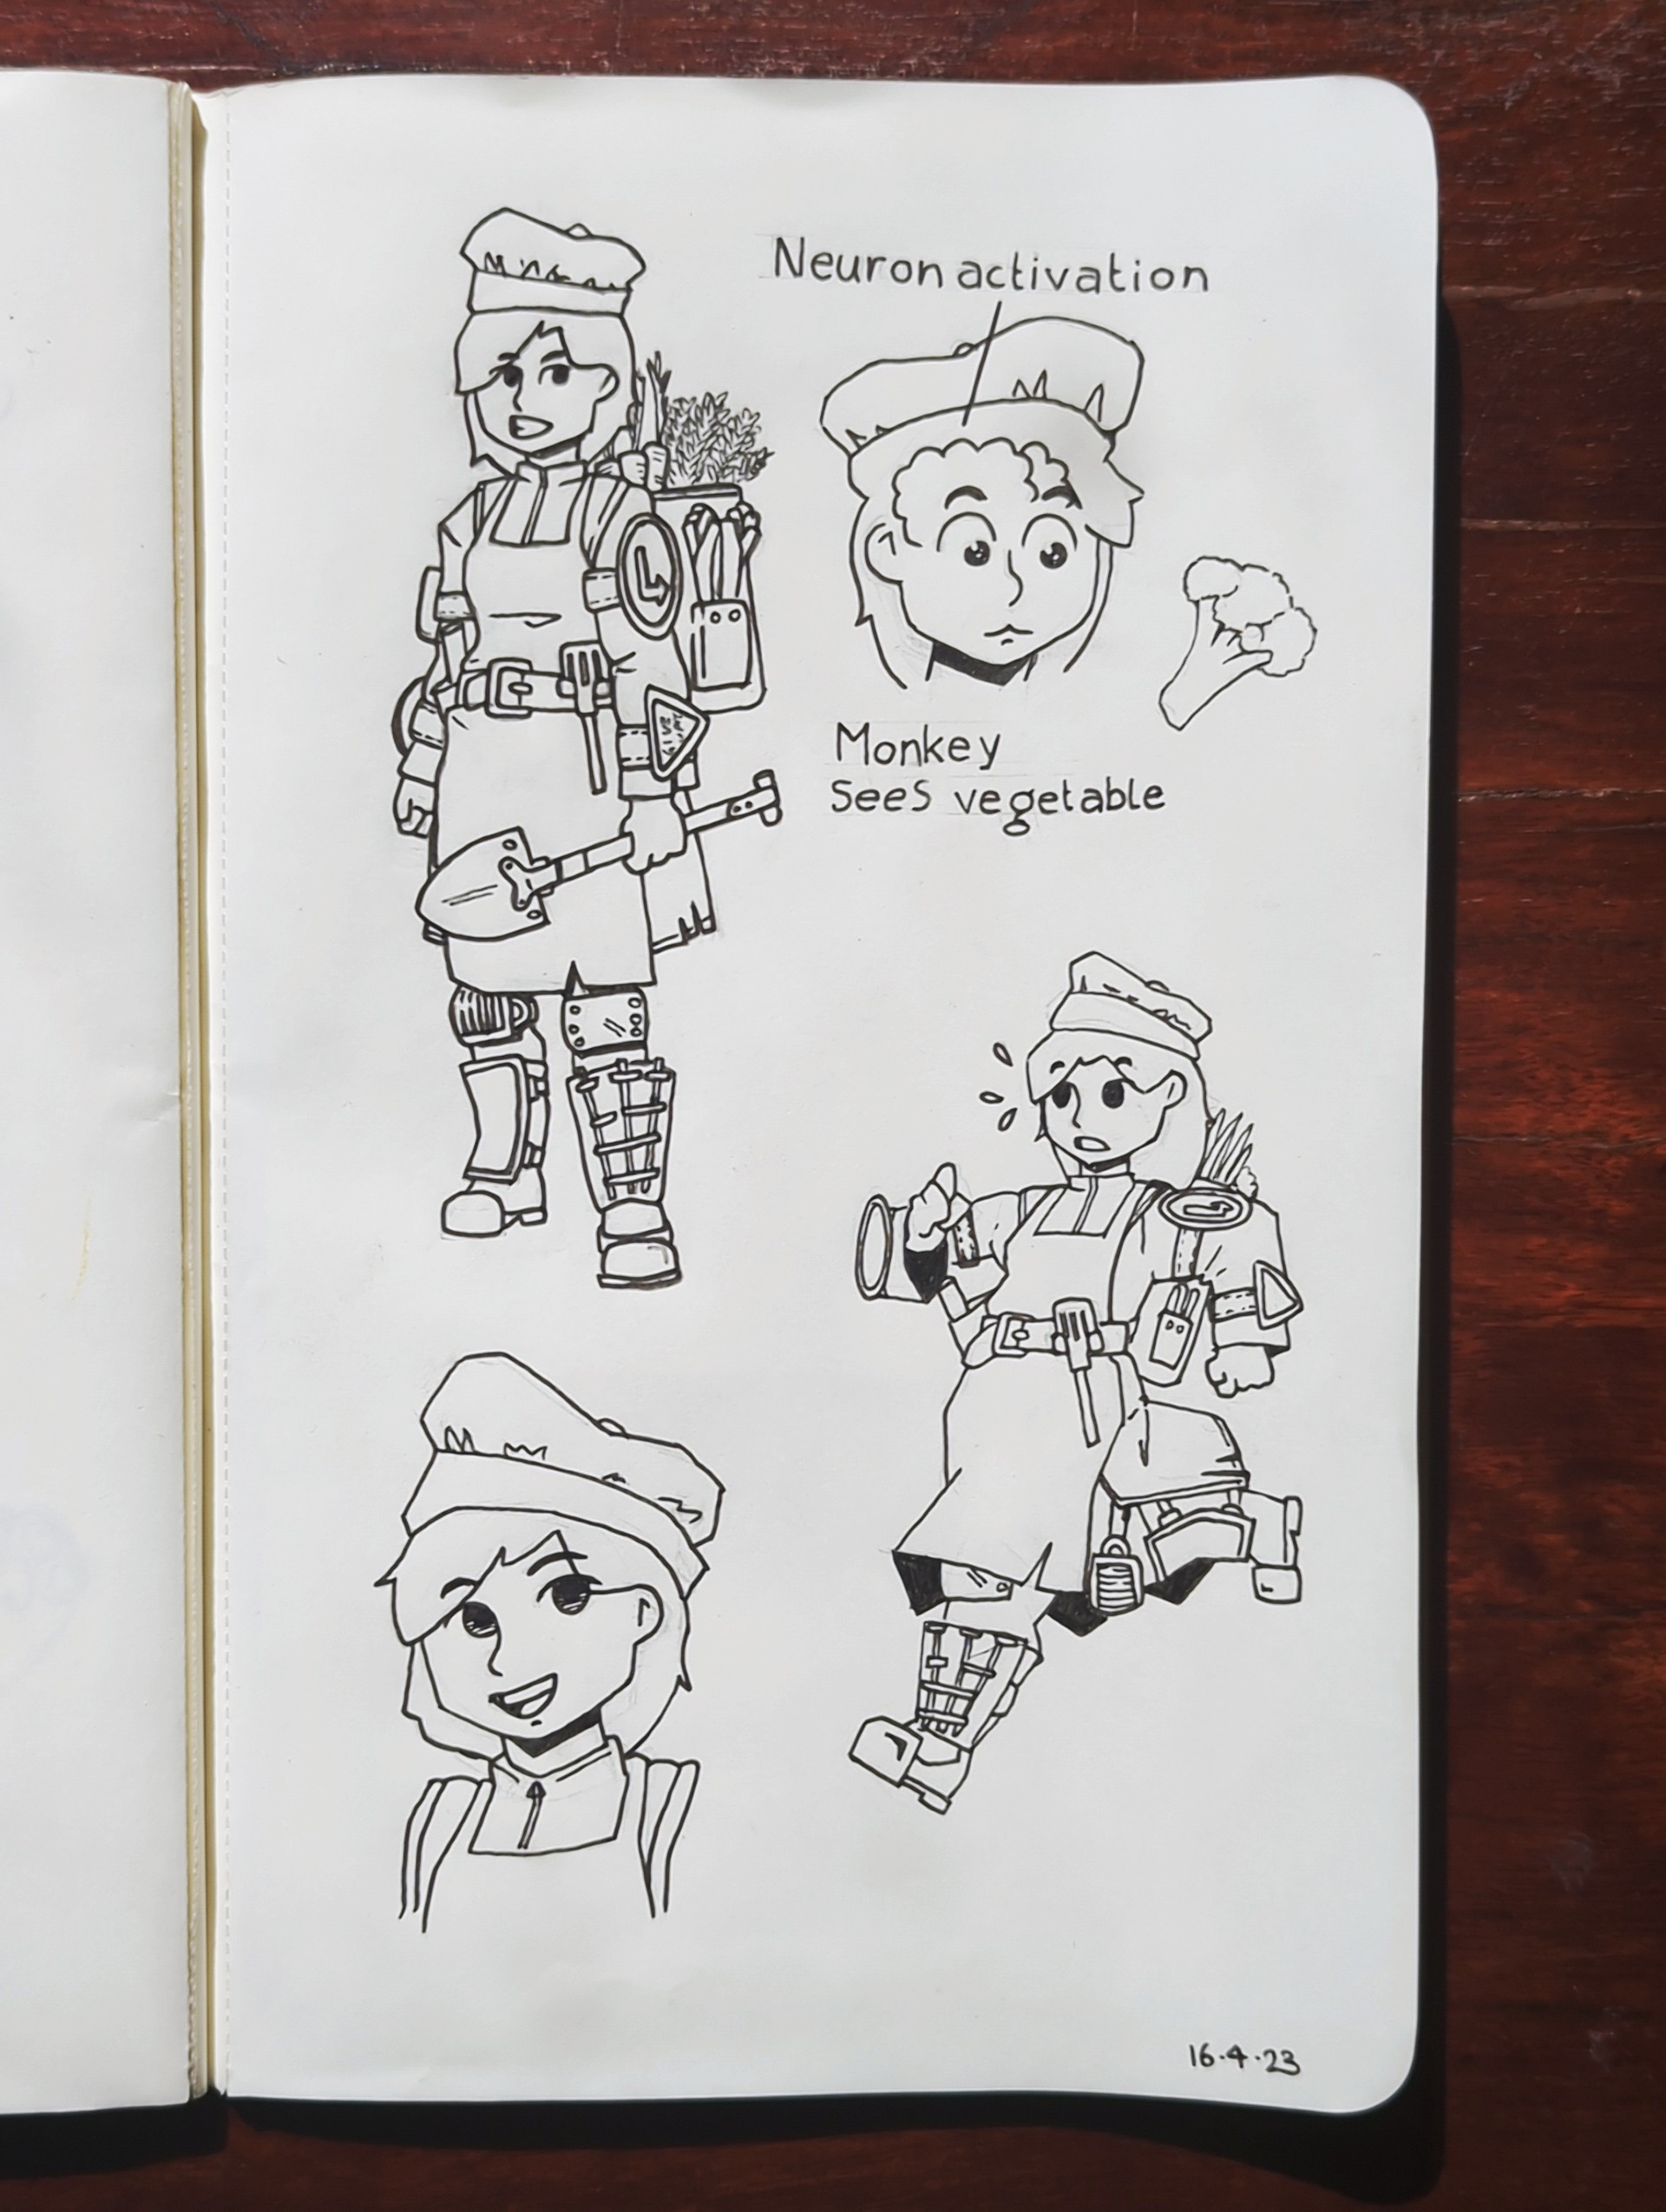 Neuron activation
Monkey
sees vegetable
16.4.23